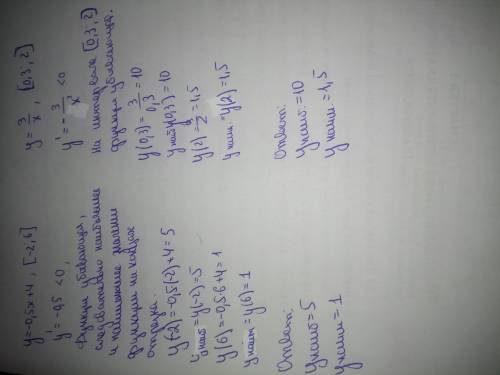 y=-0,5x+4, [-2,6]
y'=-0,5 <0,
функция убывающая,
следовательно наибольшее
и наименьшее значение
функции на концах
отрезка.
y(-2)=-0,5(-2)+4=5
y наиб=y(-2)=5
y(6)=-0,5·6+4=1
y наим=y(6)=1
Ответ:
y наиб=5
y наим=1
y=3/x, [0,3; 2]
y'=-3/x² <0
на интервале [0,3; 2]
функция убывающая,
y(0,3)=3/0,3=10
y наиб y(0,3)=10
y(2)=3/2=1,5
y наим.=y(2)=1,5
Ответ:
y наиб.=10
y наим=1,5